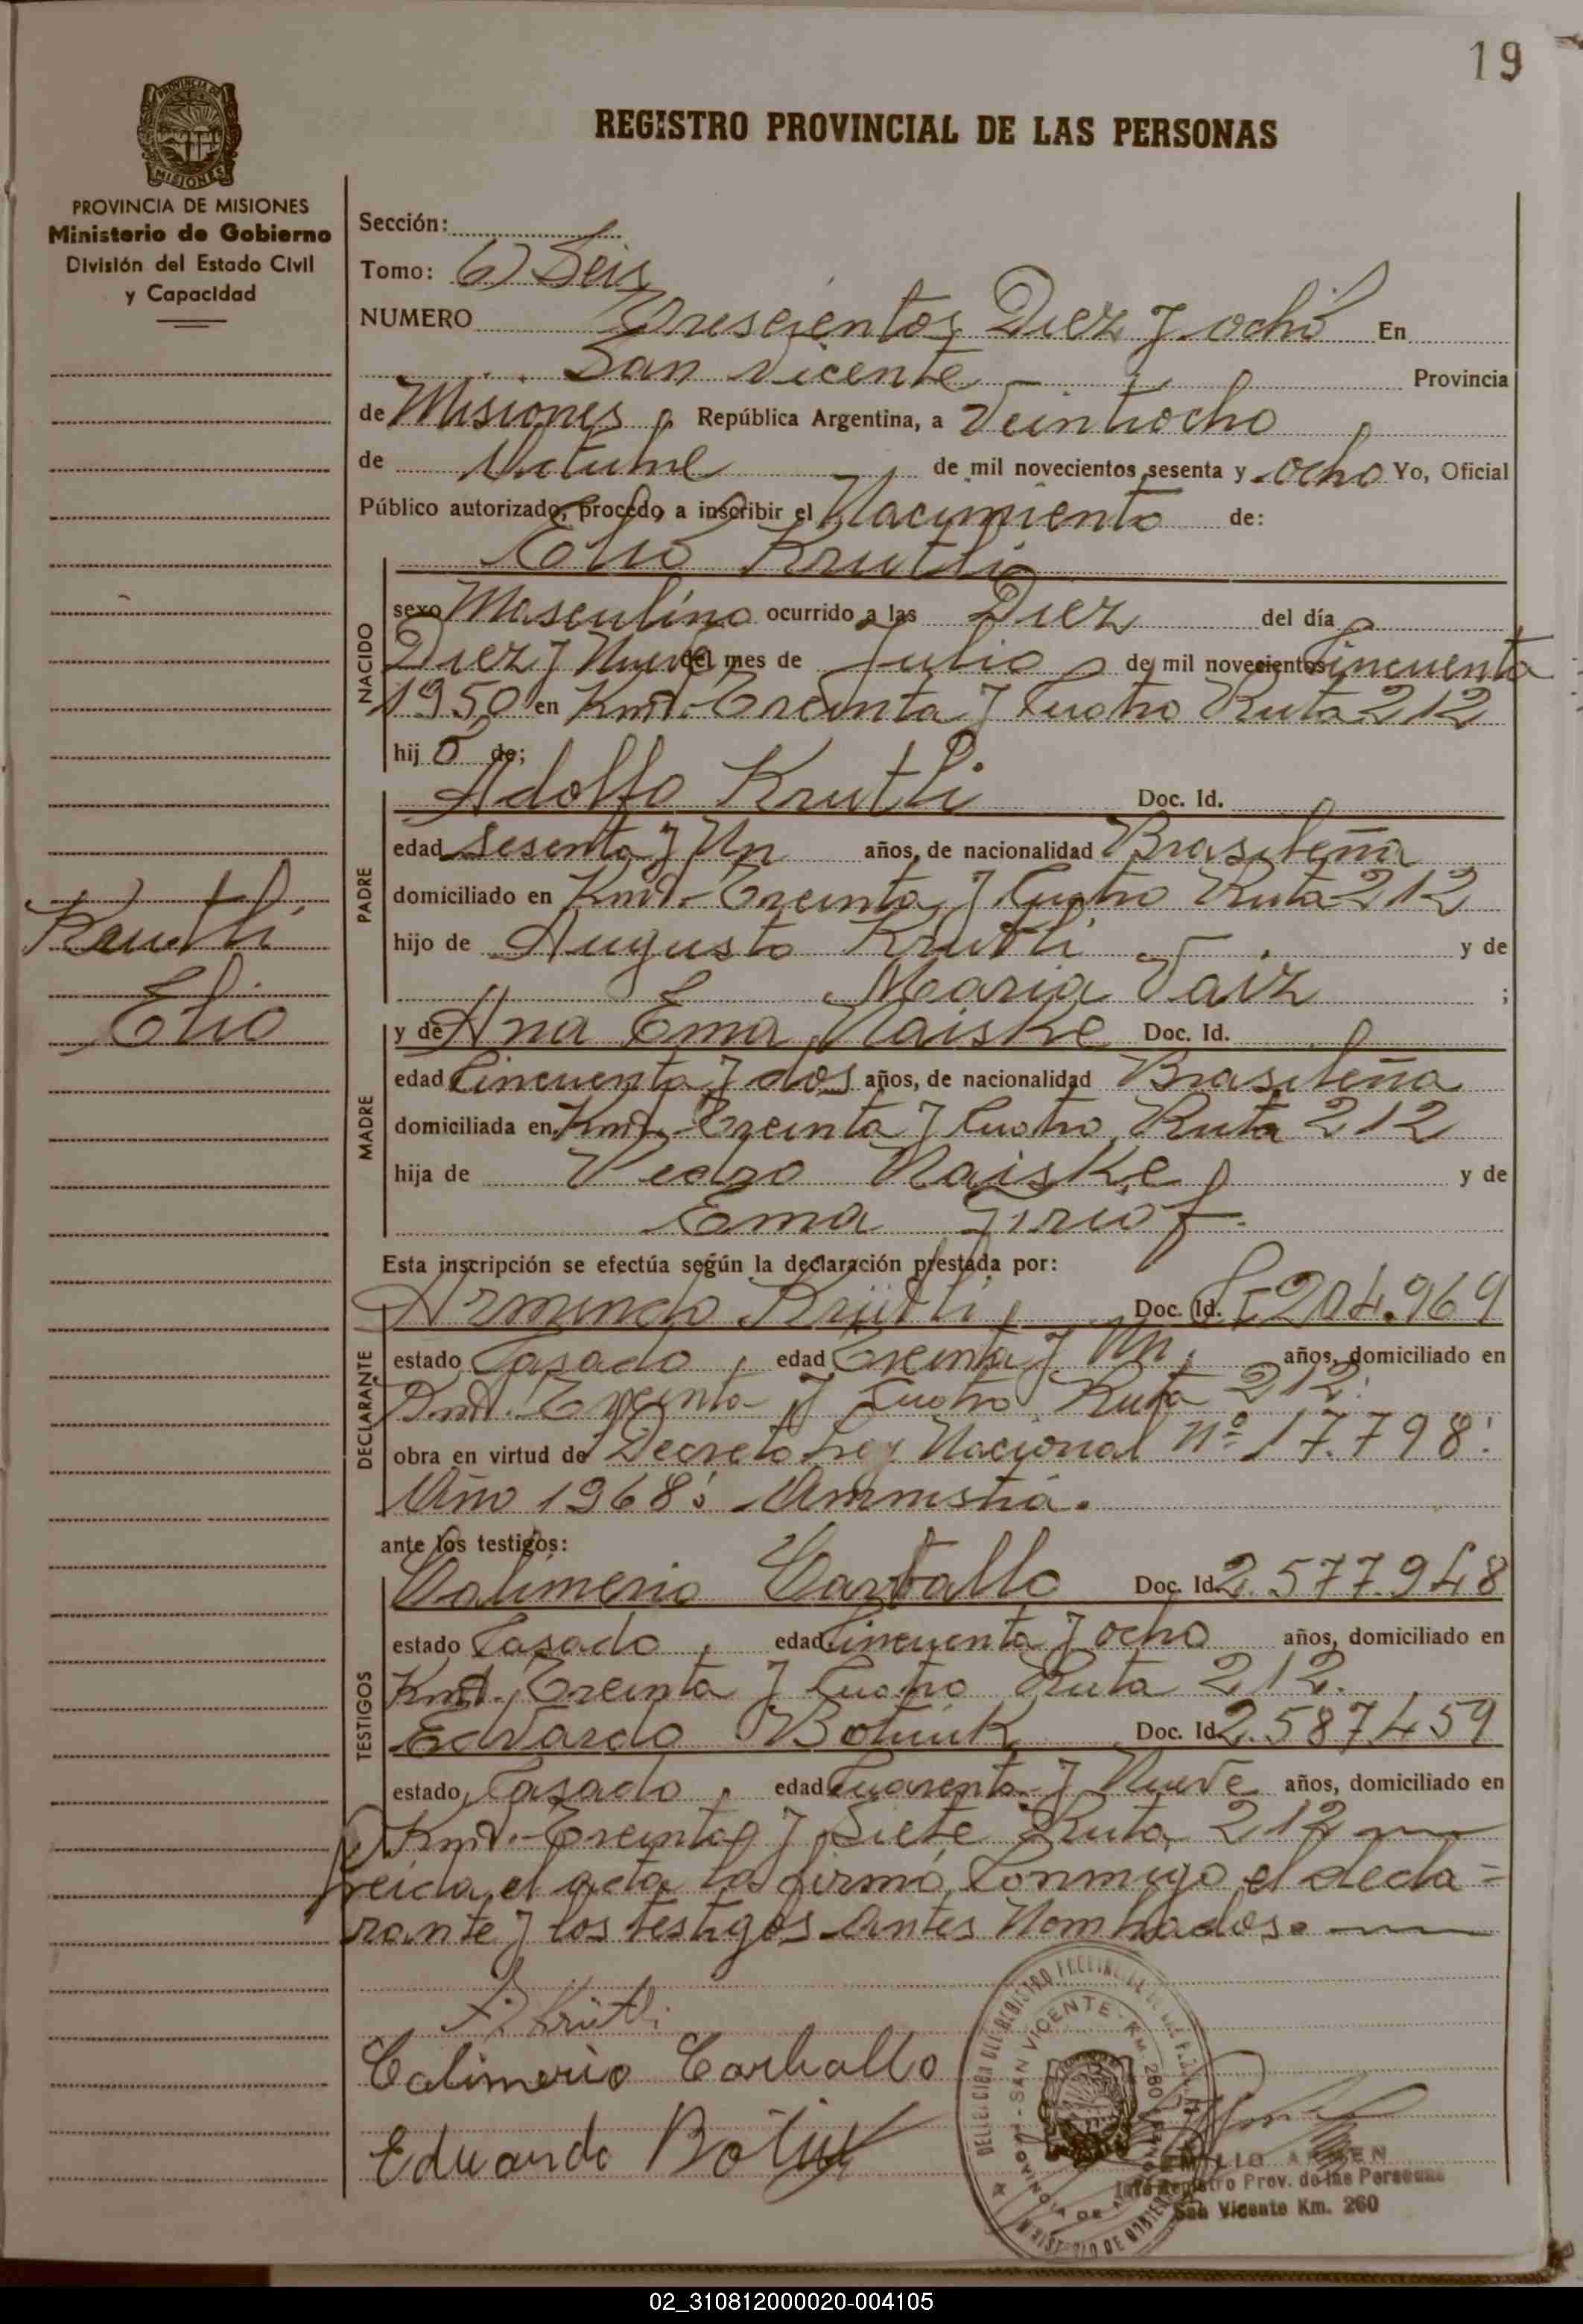 19
REGISTRO PROVINCIAL DE LAS PERSONAS
PROVINCIA DE MISIONES
Ministerio de Gobierno
División del Estado Civil
y Capacidad
Sección:
Tomo: 6) Seis
NUMERO Trescientos Diez y ocho En
San Vicente Provincia
de Misiones República Argentina, a Veintiocho
de Octubre de mil novecientos sesenta y ocho Yo, Oficial
Público autorizado, procedo a inscribir el Nacimiento de:
Elio Krutli
NACIDO
sexo Masculino ocurrido a las Diez del día
Diez y Nueve del mes de Julio de mil novecientos Cincuenta
1950 en Kmt. Treinta y Cuatro Ruta 212
hij o de;
Adolfo Krutli Doc. Id.
PADRE
edad Sesenta y Un años, de nacionalidad Brasileña
domiciliado en Kmt. Treinta y Cuatro Ruta 212
hijo de Augusto Krutli y de
Maria Vaiz ;
Krutli
Elio
y de Ana Ema Naiske Doc. Id.
MADRE
edad Cincuenta y dos años, de nacionalidad Brasileña
domiciliada en Kmt. Treinta y Cuatro Ruta 212
hija de Pedro Naiske y de
Ema
Esta inscripción se efectúa según la declaración prestada por:
Armindo Krütli Doc. Id. 204.969
DECLARANTE
estado Casado, edad Treinta y Un, años, domiciliado en
Kmt. Treinta y Cuatro Ruta 212.
obra en virtud de Decreto Ley Nacional Nº 17.798:
Año 1968: Amnistia.
ante los testigos:
Calimerio Carballo Doc. Id. 2.577.948
TESTIGOS
estado Casado, edad Cincuenta y ocho años, domiciliado en
Kmt. Treinta y Cuatro Ruta 212.
Edvardo Botiuk Doc. Id. 2.587.459
estado Casado, edad Cuarenta y Nueve años, domiciliado en
Kmt. Treinta y Siete Ruta 212
leida el acta la firmó Conmigo el decla=
rante y los testigos Antes Nombrados.
Krütli
Calimerio Carballo
Eduardo Botiuk
SAN VICENTE - Km. 260
Registro Prov. de las Personas
San Vicente Km. 260
02_310812000020-004105